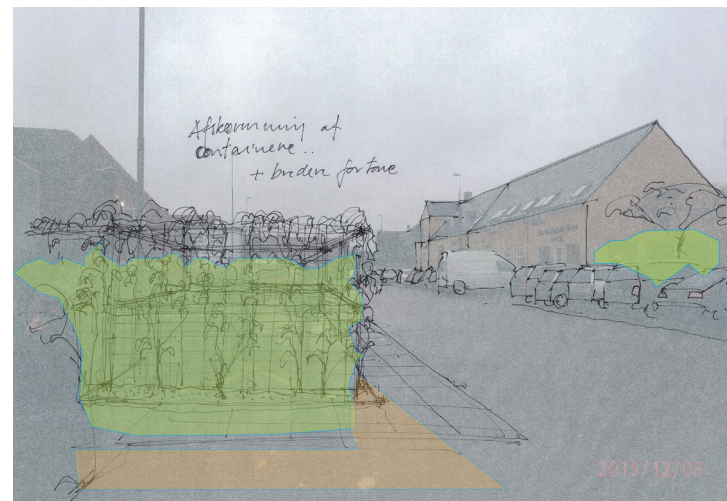 Afskærmning af
containere..
+ bredere fortove
2015/12/03